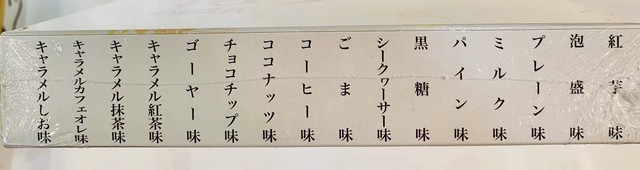 紅芋味
泡盛味
プレーン味
ミルク味
パイン味
黒糖味
シークヮーサー味
ごま味
コーヒー味
ココナッツ味
チョコチップ味
ゴーヤー味
キャラメル紅茶味
キャラメル抹茶味
キャラメルカフェオレ味
キャラメルしお味